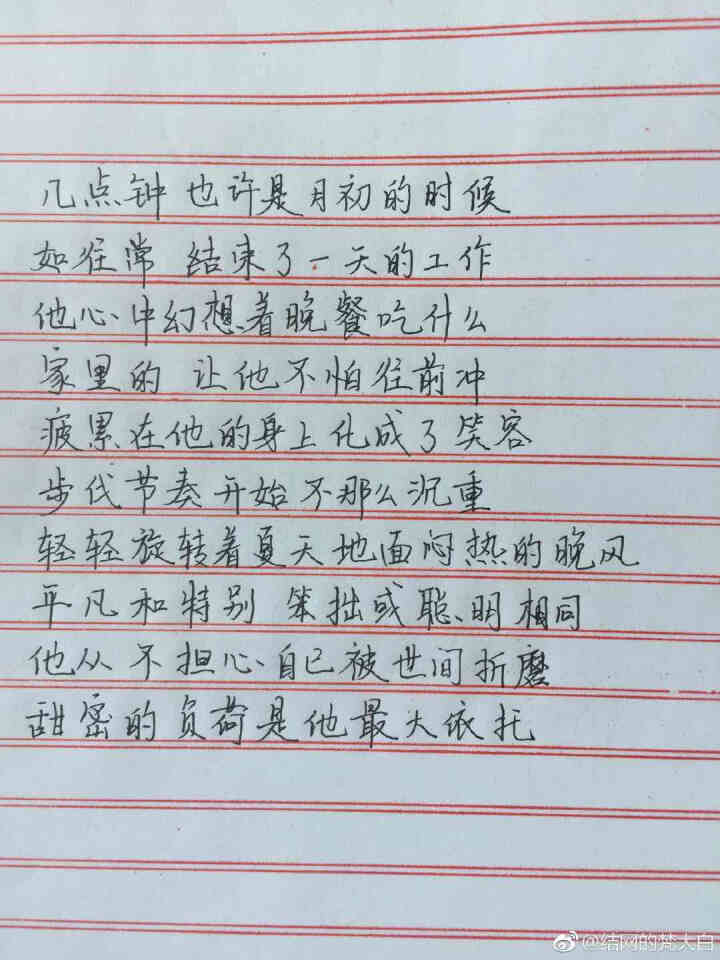 几点钟 也许是月初的时候
如往常 结束了一天的工作
他心中幻想着晚餐吃什么
家里的 让他不怕往前冲
疲累在他的身上化成了笑容
步伐节奏开始不那么沉重
轻轻旋转着夏天地面闷热的晚风
平凡和特别 笨拙或聪明相同
他从不担心自己被世间折磨
甜密的负荷是他最大依托
@结网的梵大白